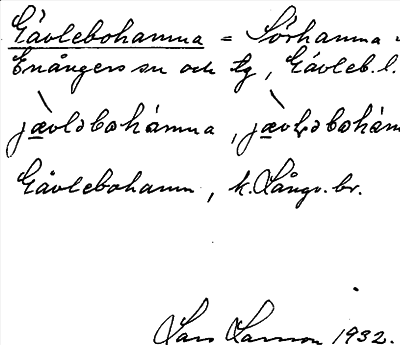 Gävlebohamna = Sörhamna
Enångers sn och tg, Gävleb. l.
jævləbohámna, jævləbohám
Gävlebohamn, k. Långv. br.
Lars Larsson 1932.